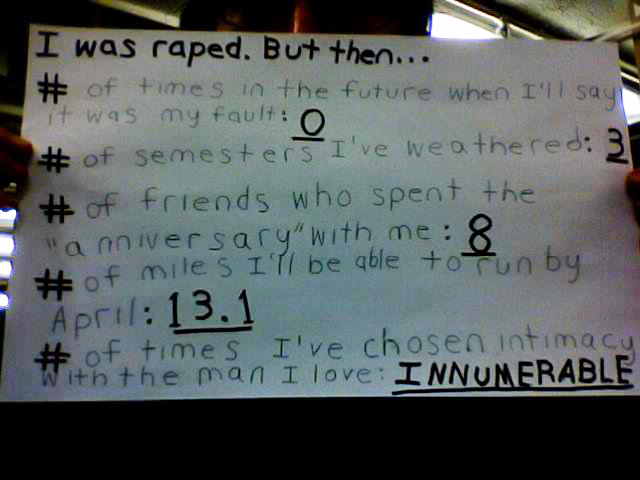 I was raped. But then...
# of times in the future when I'll say
it was my fault: 0
# of semesters I've weathered: 3
# of friends who spent the
"anniversary" with me: 8
# of miles I'll be able to run by
April: 13.1
# of times I've chosen intimacy
with the man I love: INNUMERABLE